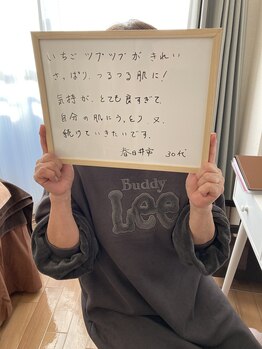 いちごツブツブが きれい
さっぱり、つるつる肌に!
気持が、とても良すぎて、
自分の肌にうっとり。又、
続けていきたいです。
春日井市 30代
Buddy
Lee